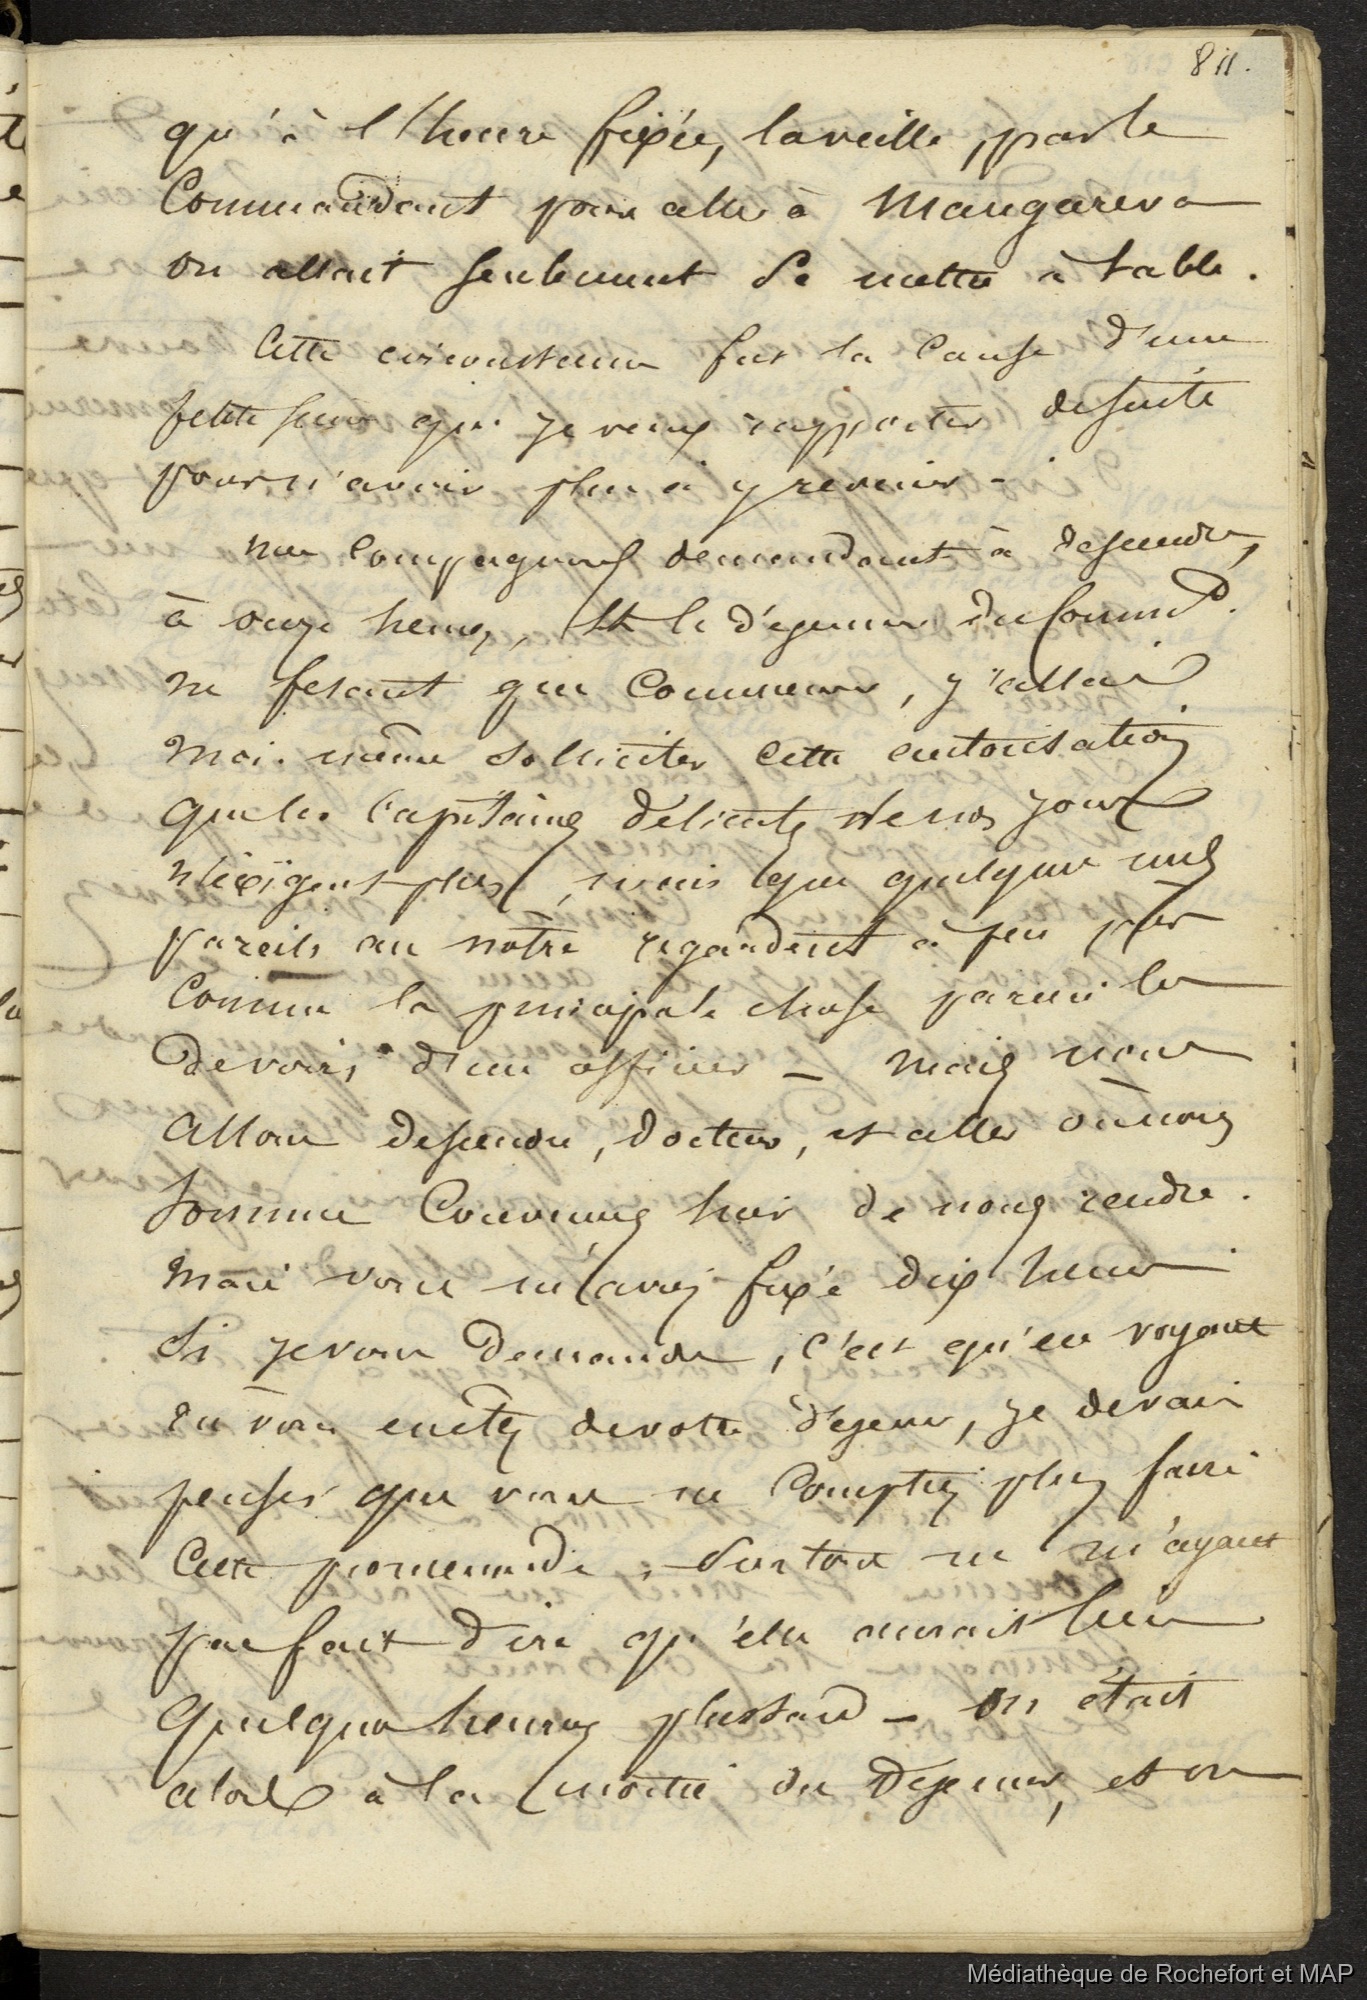 811.
qu'à l'heure fixée, la veille, par le
Commandant pour aller à Mangareva
on allait seulement se mettre à table.
Cette circonstance fut la cause d'une
petite scène que je veux rapporter desuite
pour n'avoir plus à y revenir -
mes compagnons demandant à descendre,
à onze heures, et le déjeuner du Commd.
ne fesant que commencer, j'allai
moi-même solliciter cette autorisation
que les capitaines délicats de nos jours
n'éxigent plus, mais que quelques uns
pareils au nôtre regardent à peu près
comme la principale chose parmi les
devoirs d'un officier - mais nous
allons descendre, docteur, et aller où nous
sommes convenus hier de nous rendre.
mais vous m'avez fixé dix heures
Si je vous demande, c'est qu'en voyant
où vous en êtes de votre déjeuner, je devais
penser que vous ne comptiez plus faire
cette promenade, surtout ne m'ayant
pas fait dire qu'elle aurait lieu
quelques heures plus tard - on était
alors à la moitié du déjeuner, et on
Médiathèque de Rochefort et MAP